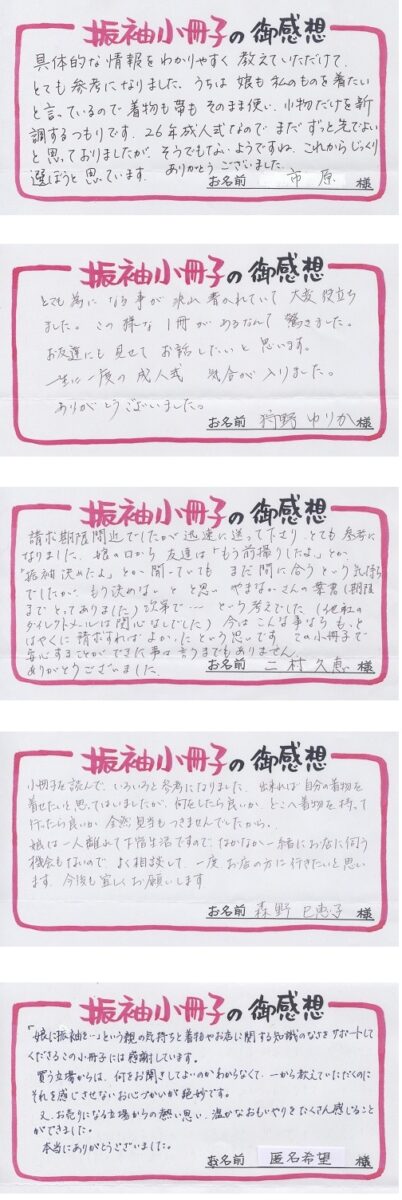 振袖小冊子の御感想
具体的な情報をわかりやすく教えていただけて、
とても参考になりました。うちは娘も私のものを着たい
と言っているので着物も帯もそのまま使い、小物だけを新
調するつもりです。26年成人式なのでまだずっと先でよい
と思っておりましたが、そうでもないようですね。これからじっくり
選ぼうと思っています。ありがとうございました。
お名前 市原 様
振袖小冊子の御感想
とても為になる事が沢山書かれていて大変役立ち
ました。この様な1冊があるなんて驚きました。
お友達にも見せてお話したいと思います。
一生に一度の成人式 気合が入りました。
ありがとうございました。
お名前 狩野ゆりか 様
振袖小冊子の御感想
請求期限間近でしたが迅速に送って下さり、とても参考に
なりました。娘の口から友達は「もう前撮りしたよ」とか
「振袖決めたよ」とか聞いていても まだ間に合うという気持ち
でしたが、もう決めないと と思い やまなかさんの葉書(期限
までとってありました)次第で… という考えでした(他社の
ダイレクトメールは関心なしでした)今はこんな事なら もっと
はやくに請求すればよかったという思いです この小冊子で
安心することができた事は言うまでもありません。
ありがとうございました。
お名前 二村久恵 様
振袖小冊子の御感想
小冊子を読んで、いろいろと参考になりました。出来れば自分の着物を
着せたいと思ってはいましたが、何をしたら良いか、どこへ着物を持って
行ったら良いか、全然見当もつきませんでしたから。
娘は一人離れて下宿生活ですので、なかなか一緒にお店に伺う
機会もないので、よく相談して、一度お店の方に行きたいと思い
ます。今後も宜しくお願いします
お名前 森野 恵子 様
振袖小冊子の御感想
「娘に振袖を…」という親の気持ちと着物やお店に関する知識のなさをサポートして
くださるこの小冊子には感謝しています。
買う立場からは、何をお聞きしてよいのかわからなくて、一から教えていただくのに
それを感じさせないお心づかいが絶妙です。
又、お売りになる立場からの熱い思い、温かなおもいやりをたくさん感じること
ができました。
本当にありがとうございました。
お名前 匿名希望 様